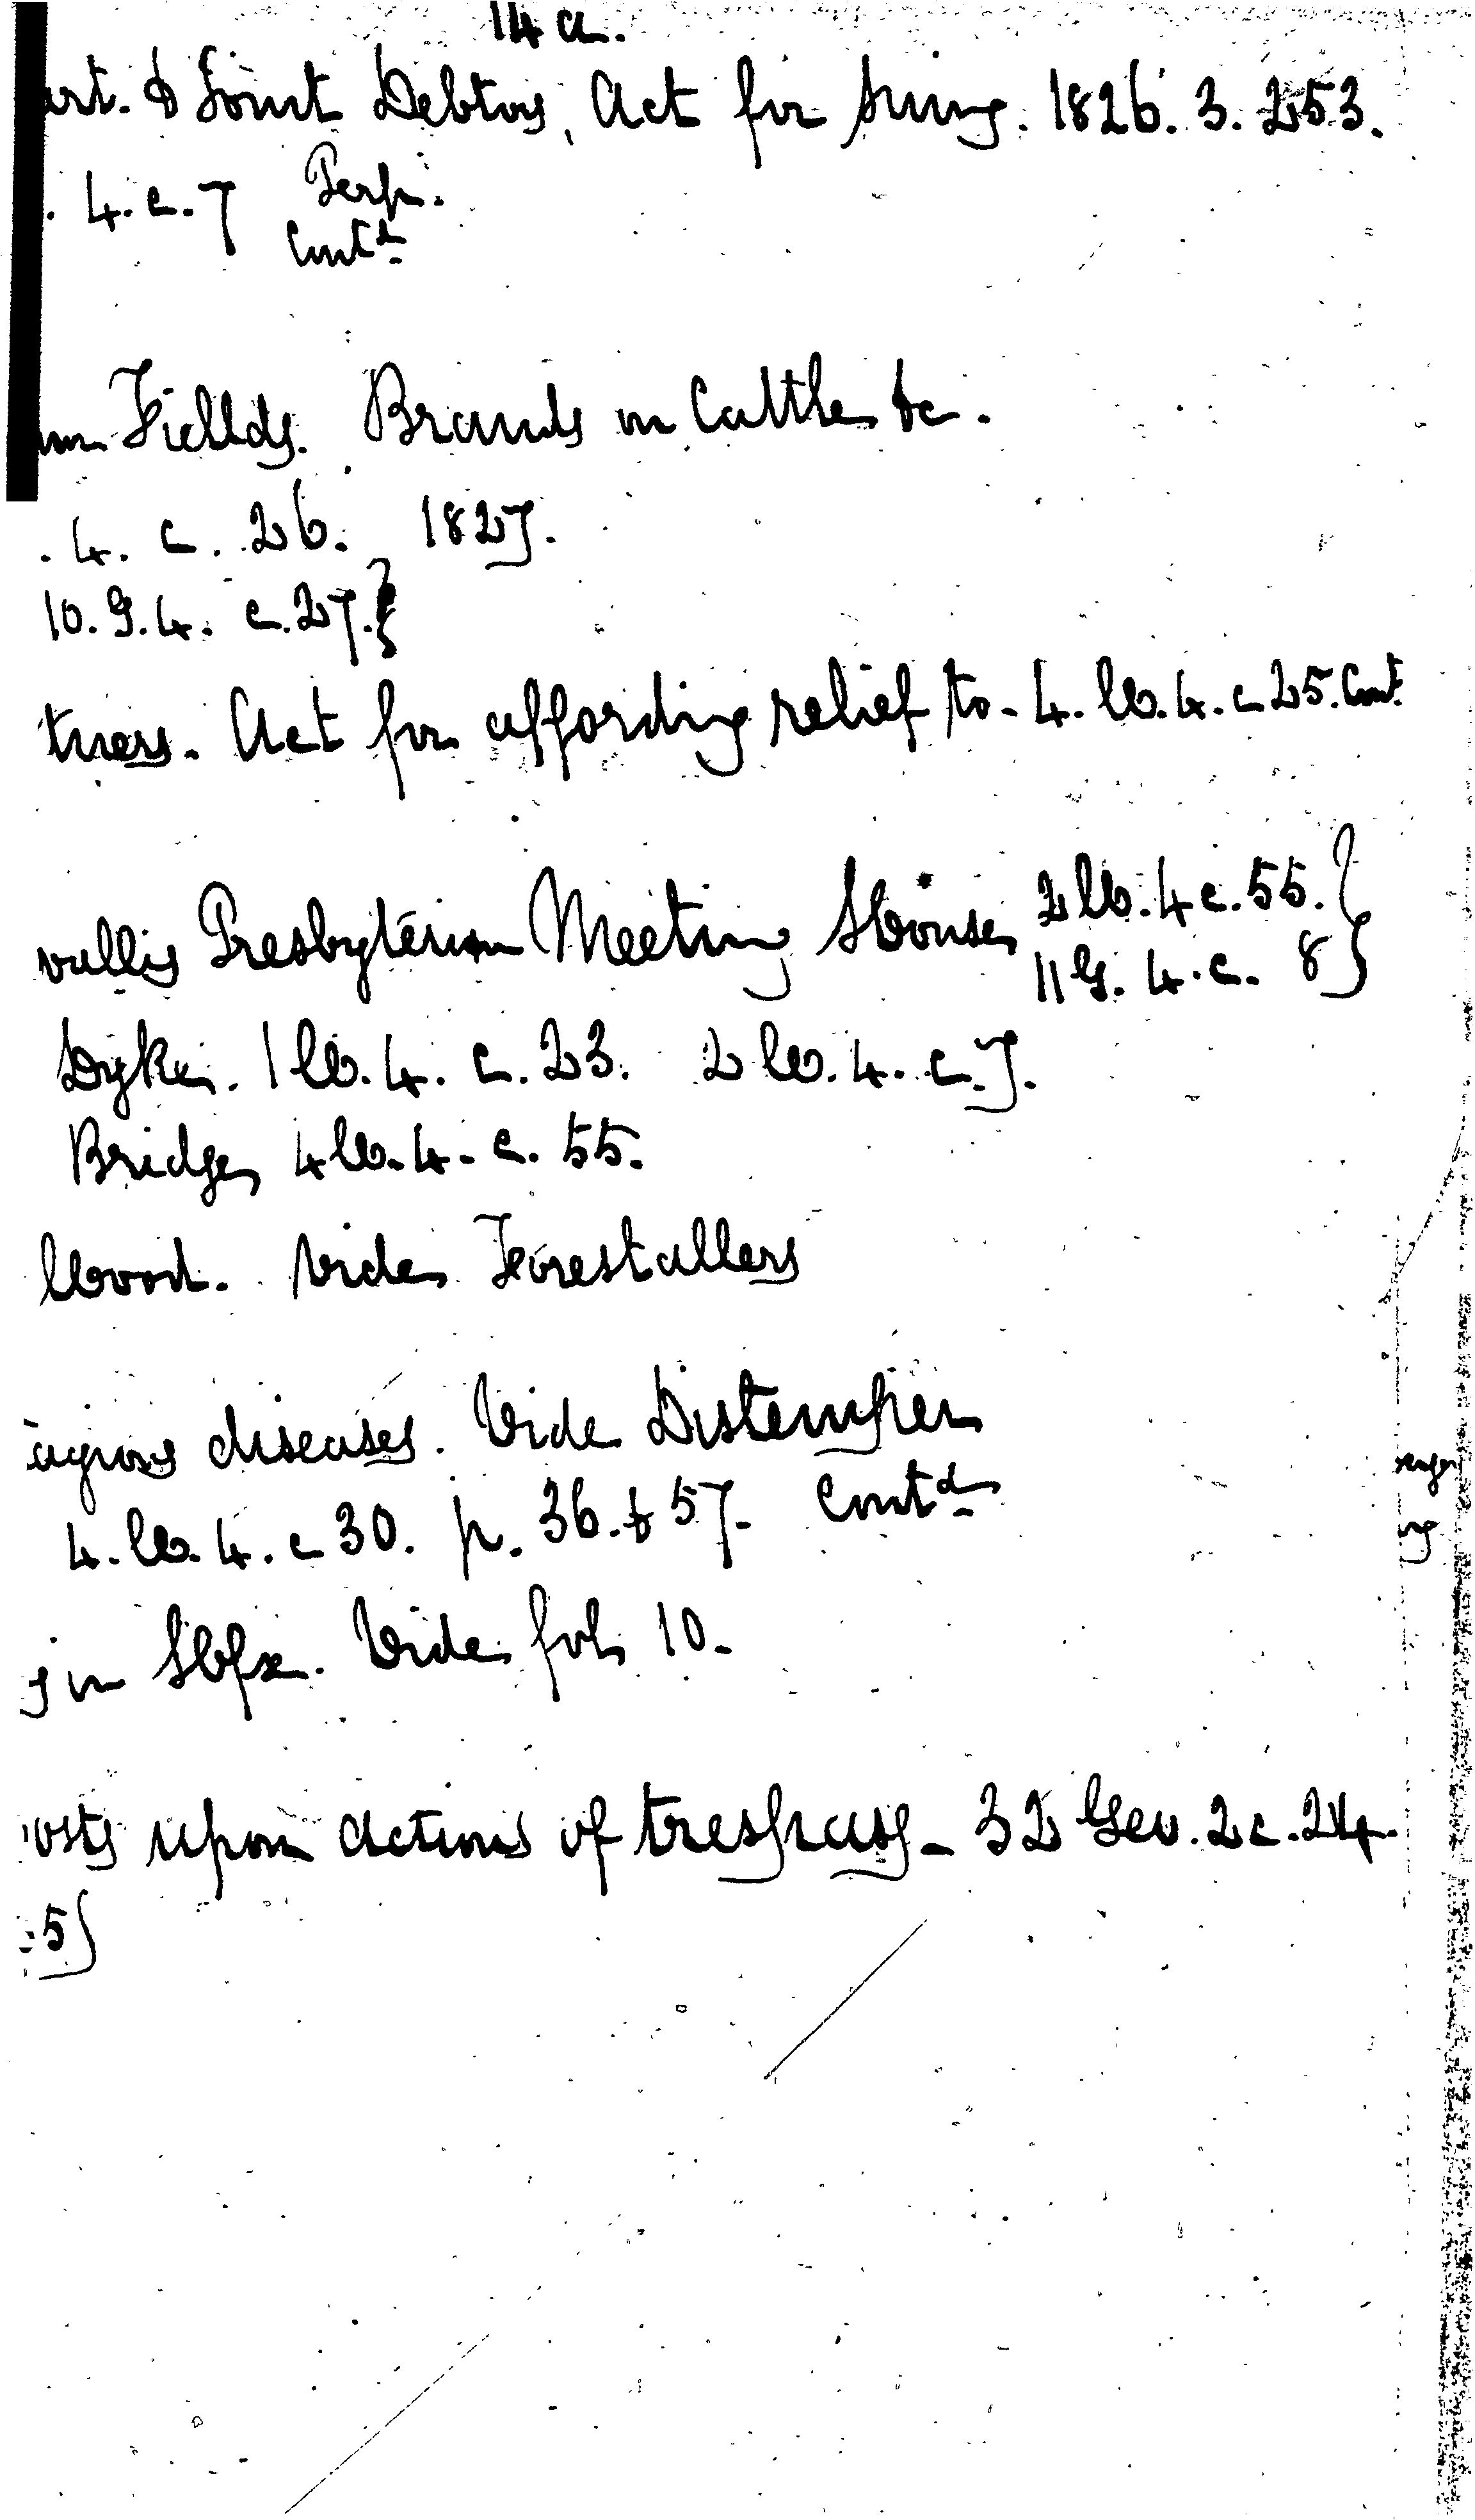 14 a.
art. & Joint Debtors, Act for suing. 1826. 3. 253.
. 4. c. 7 Perp.
Contd
Fiellds. Brands on Cattle &c.
. 4. c. 26. 1827.
10. G. 4. c. 27. }
tners. Act for affording relief to. 4. W. 4. c 25. Cont.
wallis Presbyterian Meeting House 2 W. 4 c. 55. }
11 G. 4. c. 8 }
Dyke. 1 W. 4. c. 23. 2 W. 4. c. 7.
Bridge 4 W. 4. c. 55.
Wood. Vide Forestallers
agious diseases. Vide Distemper
4. W. 4. c 30. p. 36. & 57. Contd
g in Hfx. Vide fol 10.
osts upon actions of trespass - 32 Geo. 2 c. 24.
5}